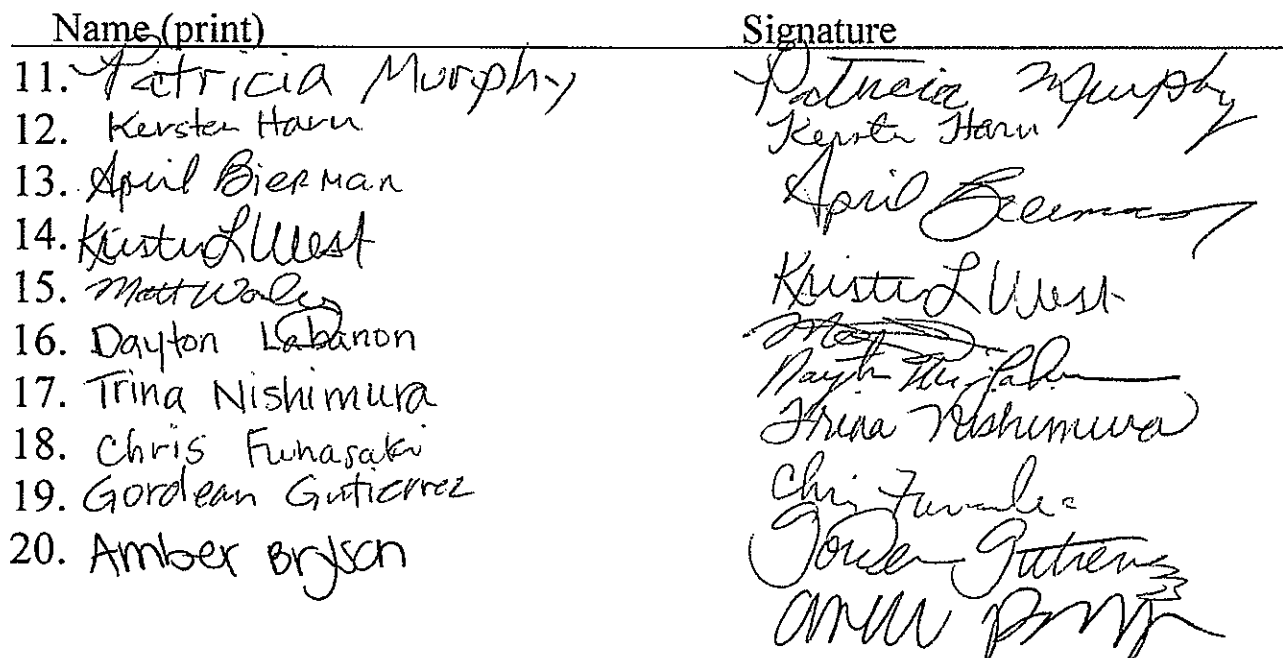 Name (print) Signature
11. Patricia Murphy Patricia Murphy
12. Kersten Haru Kersten Haru
13. April Bierman April Bierman
14. Kristen L West Kristen L West
15. Matt
16. Dayton Labanon
17. Trina Nishimura Trina Nishimura
18. Chris Funasaki Chris
19. Gordean Gutierrez Gordean Gutierrez
20. Amber Bryson Amber